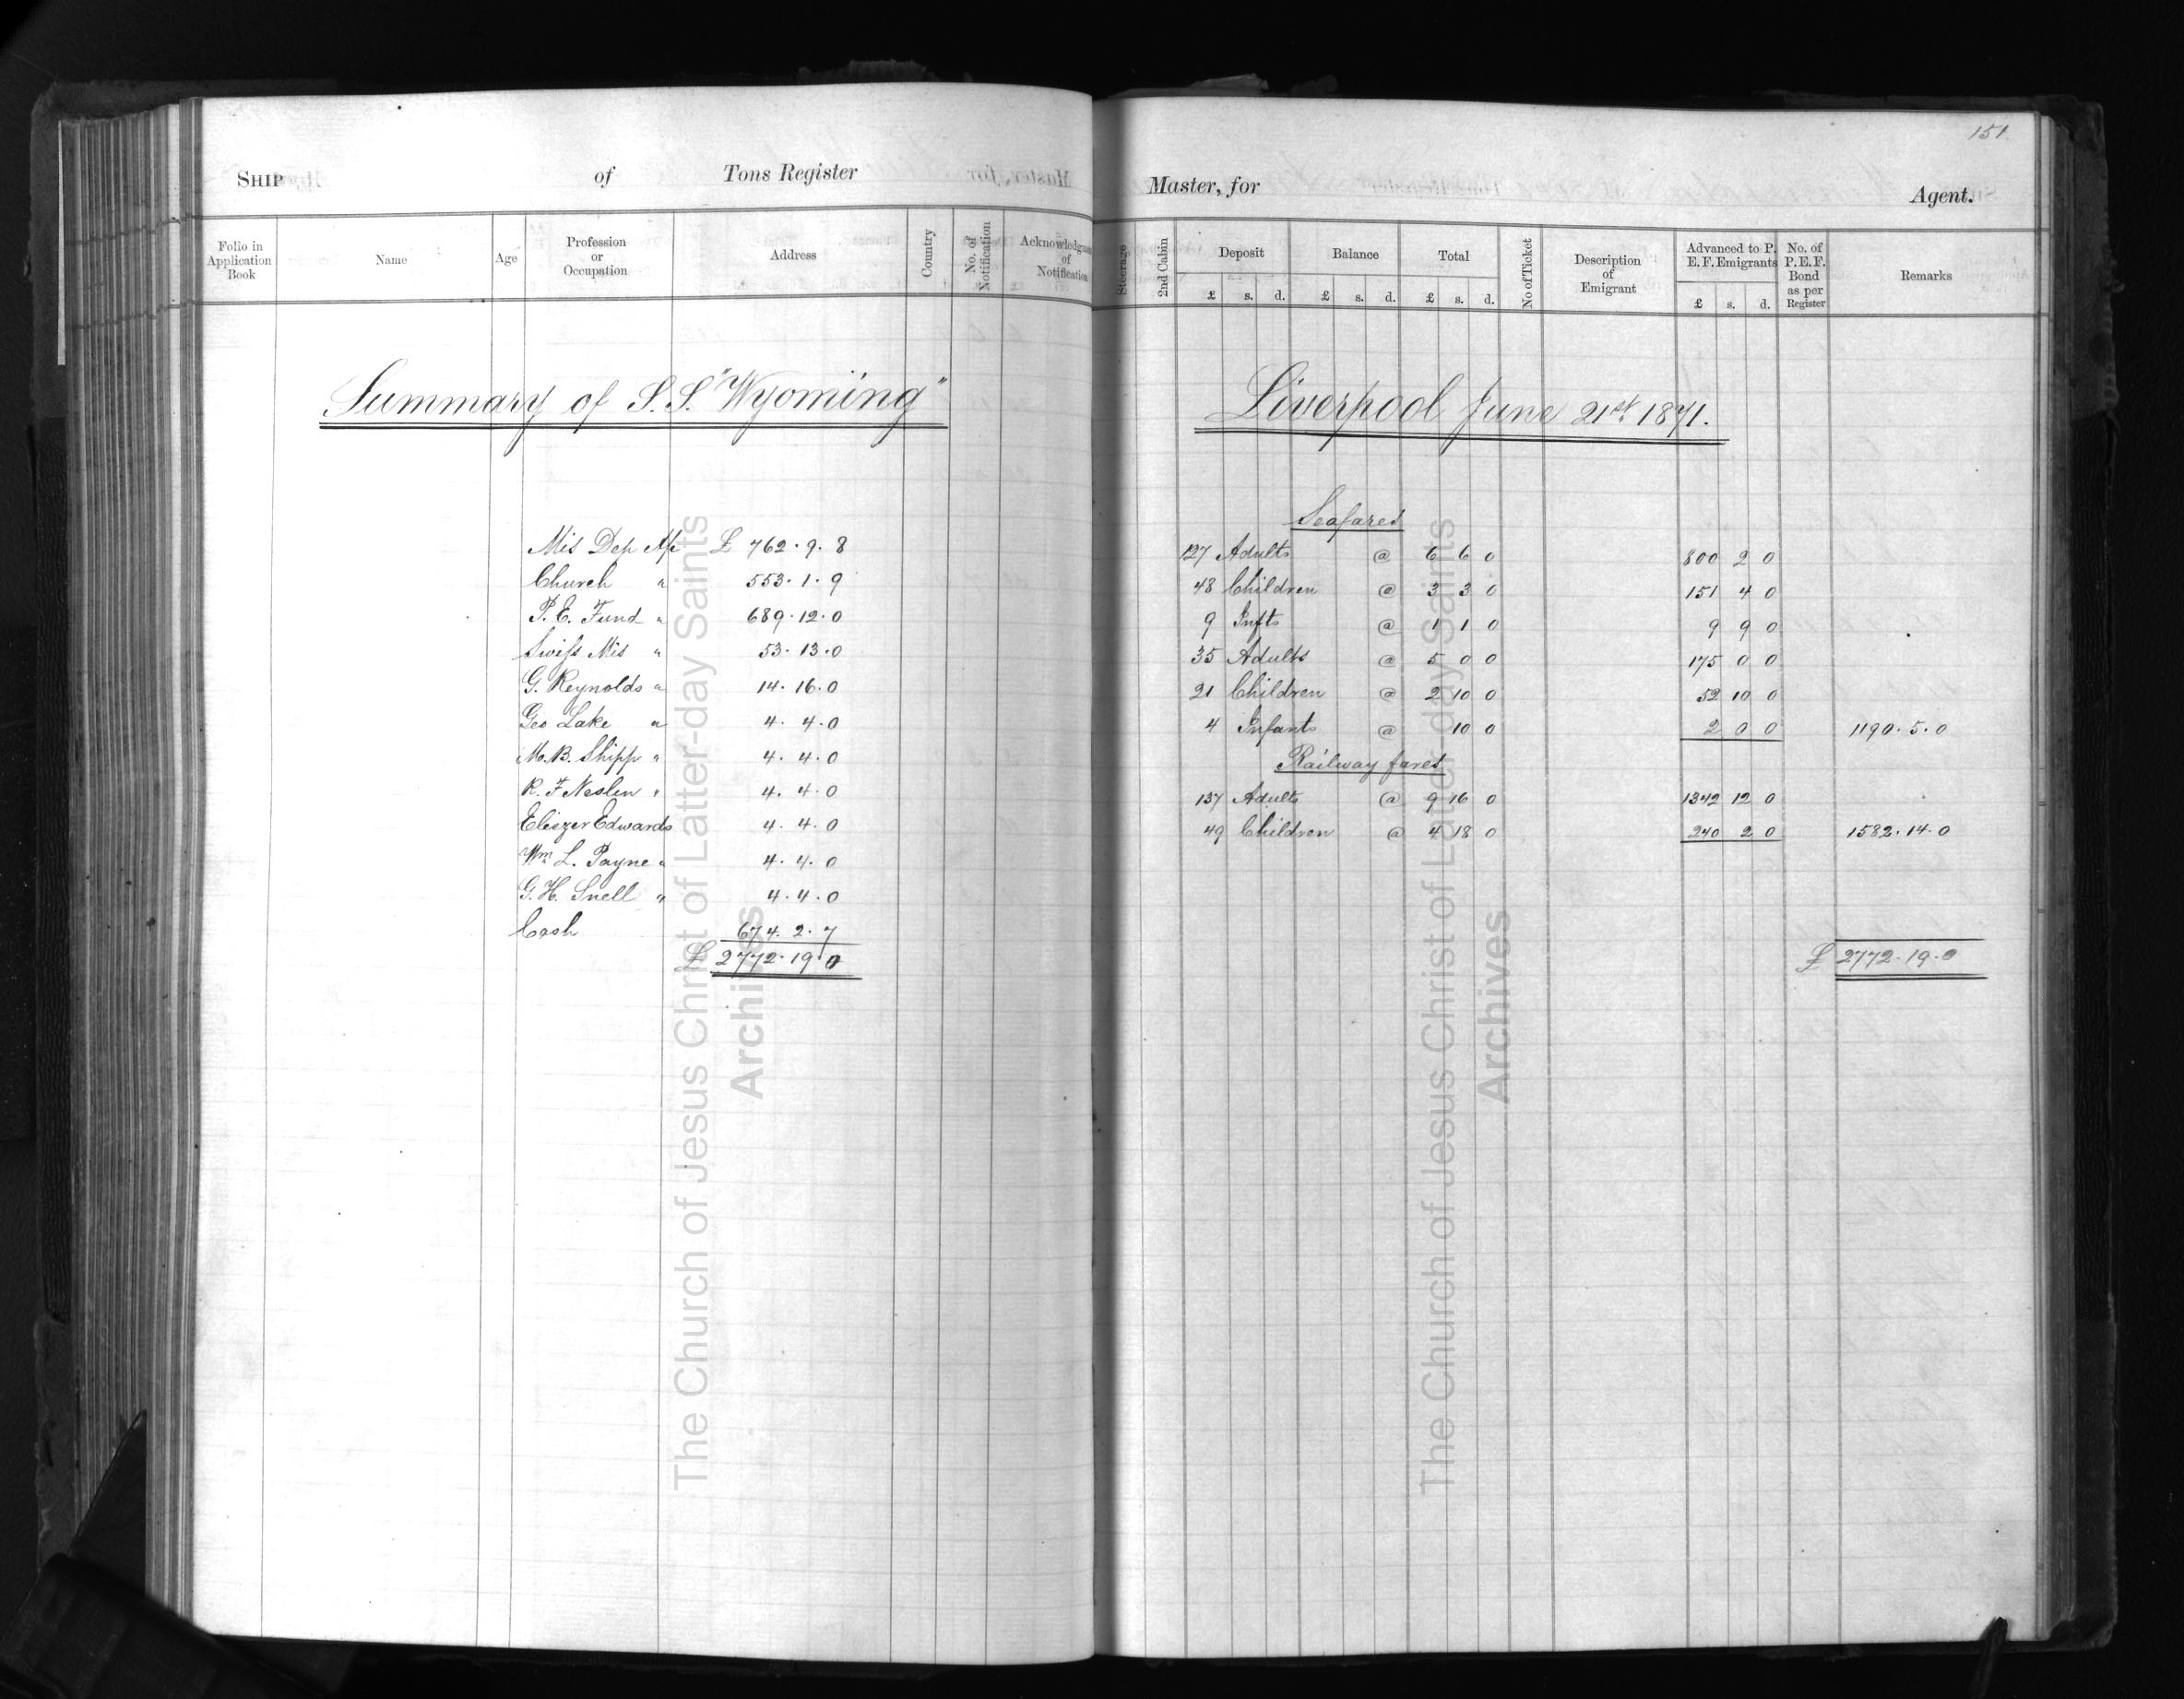 151.
SHIP of Tons Register
Master, for Agent.
Folio in Application Book
Name
Age
Profession or Occupation
Address
Country
No. of Notification
Acknowledgment of Notification
Steerage
2nd Cabin
Deposit
£ s. d.
Balance
£ s. d.
Total
£ s. d.
No of Ticket
Description of Emigrant
Advanced to P. E. F. Emigrants
£ s. d.
No. of P. E. F. Bond as per Register
Remarks
Summary of S.S. "Wyoming"
Mis Dep A/c £ 762. 9. 8
Church " 553. 1. 9
P. E. Fund " 689. 12. 0
Swiss Mis " 53. 13. 0
G. Reynolds " 14. 16. 0
Geo Lake " 4. 4. 0
M. B. Shipp " 4. 4. 0
R. F Neslen " 4. 4. 0
Eliezer Edwards 4. 4. 0
Wm L. Payne " 4. 4. 0
G. H. Snell " 4. 4. 0
Cash 674. 2. 7
£ 2772. 19. 0
Liverpool June 21st 1871.
Seafares
127 Adults @ 6 6 0 800 2 0
48 Children @ 3 3 0 151 4 0
9 Infts @ 1 1 0 9 9 0
35 Adults @ 5 0 0 175 0 0
21 Children @ 2 10 0 52 10 0
4 Infants @ 10 0 2 0 0 1190. 5. 0
Railway fares
137 Adults @ 9 16 0 1342 12 0
49 Children @ 4 18 0 240 2 0 1582. 14. 0
£ 2772. 19. 0
The Church of Jesus Christ of Latter-day Saints
Archives
The Church of Jesus Christ of Latter-day Saints
Archives